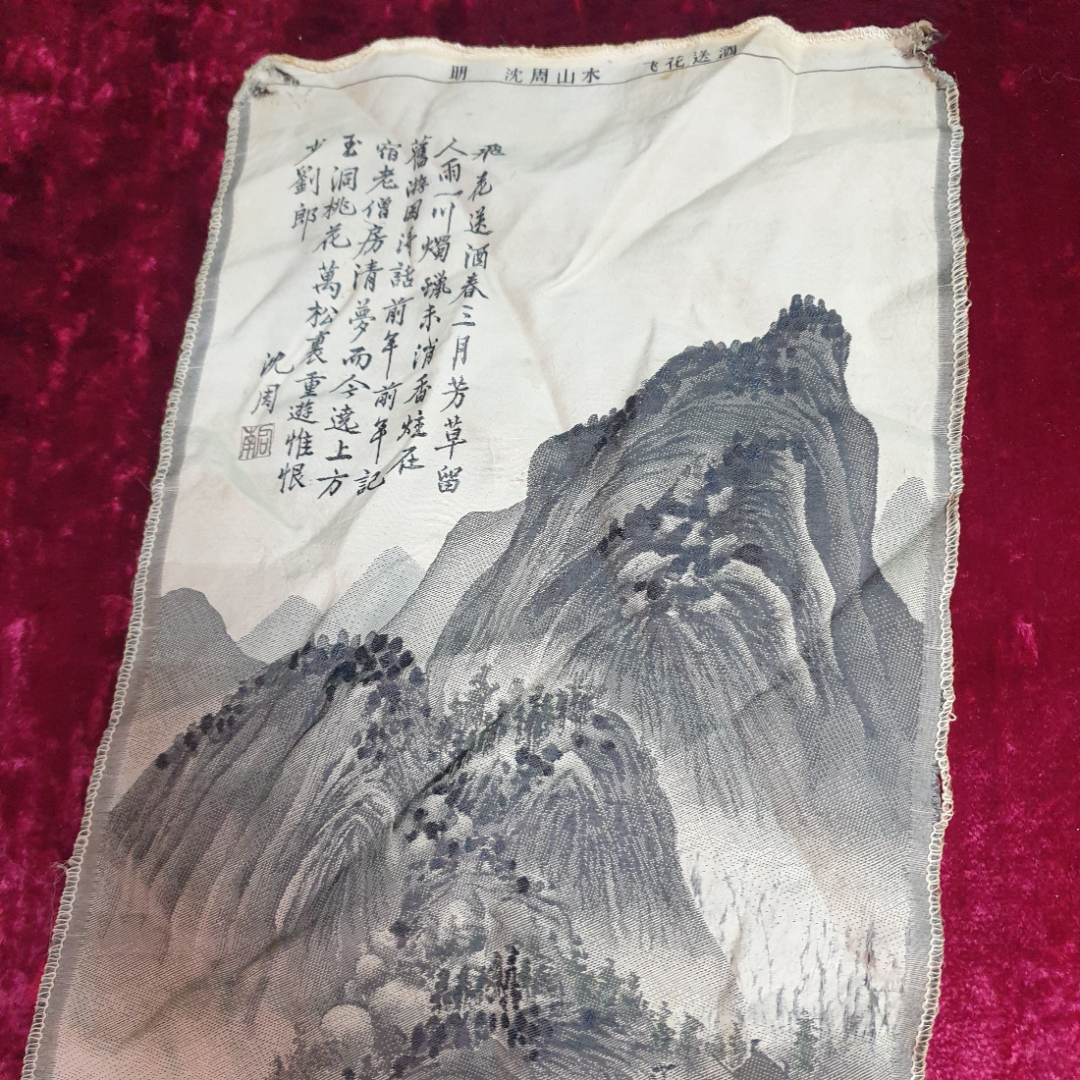 明 沈周山水 飞花送酒
飛花送酒春三月芳草留
人雨一川燭蠟未消香炷在
舊游因汝話前年前年記
宿老僧房清夢而今遶上方
玉洞桃花萬松裏重遊惟恨
少劉郎
沈周